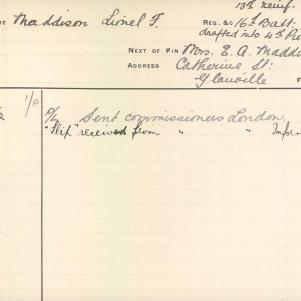 13th reinf.
Maddison Lionel F. REG. &c 16th Batt.
drafted into 4th
NEXT OF KIN Mrs. E. A. Maddi
ADDRESS Catherine St:
Glanville
1/P P/2 Sent commissioners London.
"Slip" received from " " Infor